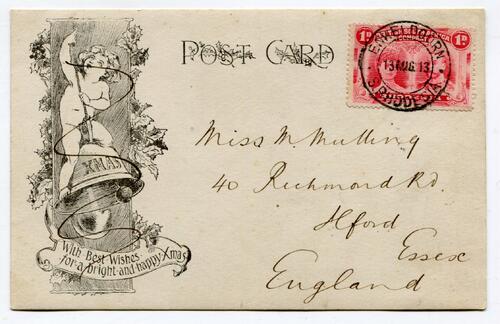 POST CARD
1D 1D
ENKELDOORN
13 AUG 13
S. RHODESIA
XMAS
With Best Wishes
for a bright and happy Xmas
Miss M Mulling
40 Richmond Rd.
Ilford
Essex
England